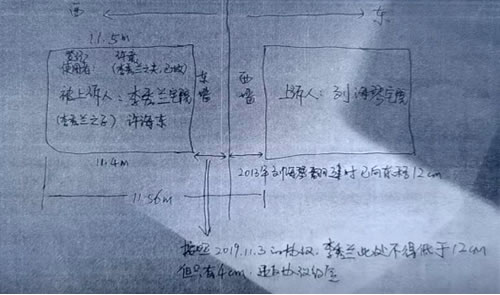 西 东
11.5m
登记 许
使用者 (李秀兰之夫,已故)
被上诉人:李秀兰宅院
(李秀兰之子) 许海东
东墙
西墙
上诉人:刘海琴宅院
11.4m
2013年刘海琴翻建时已向东移12cm
11.56m
按照2019.11.3的协议,李秀兰此处不得低于12cm
但只有4cm,